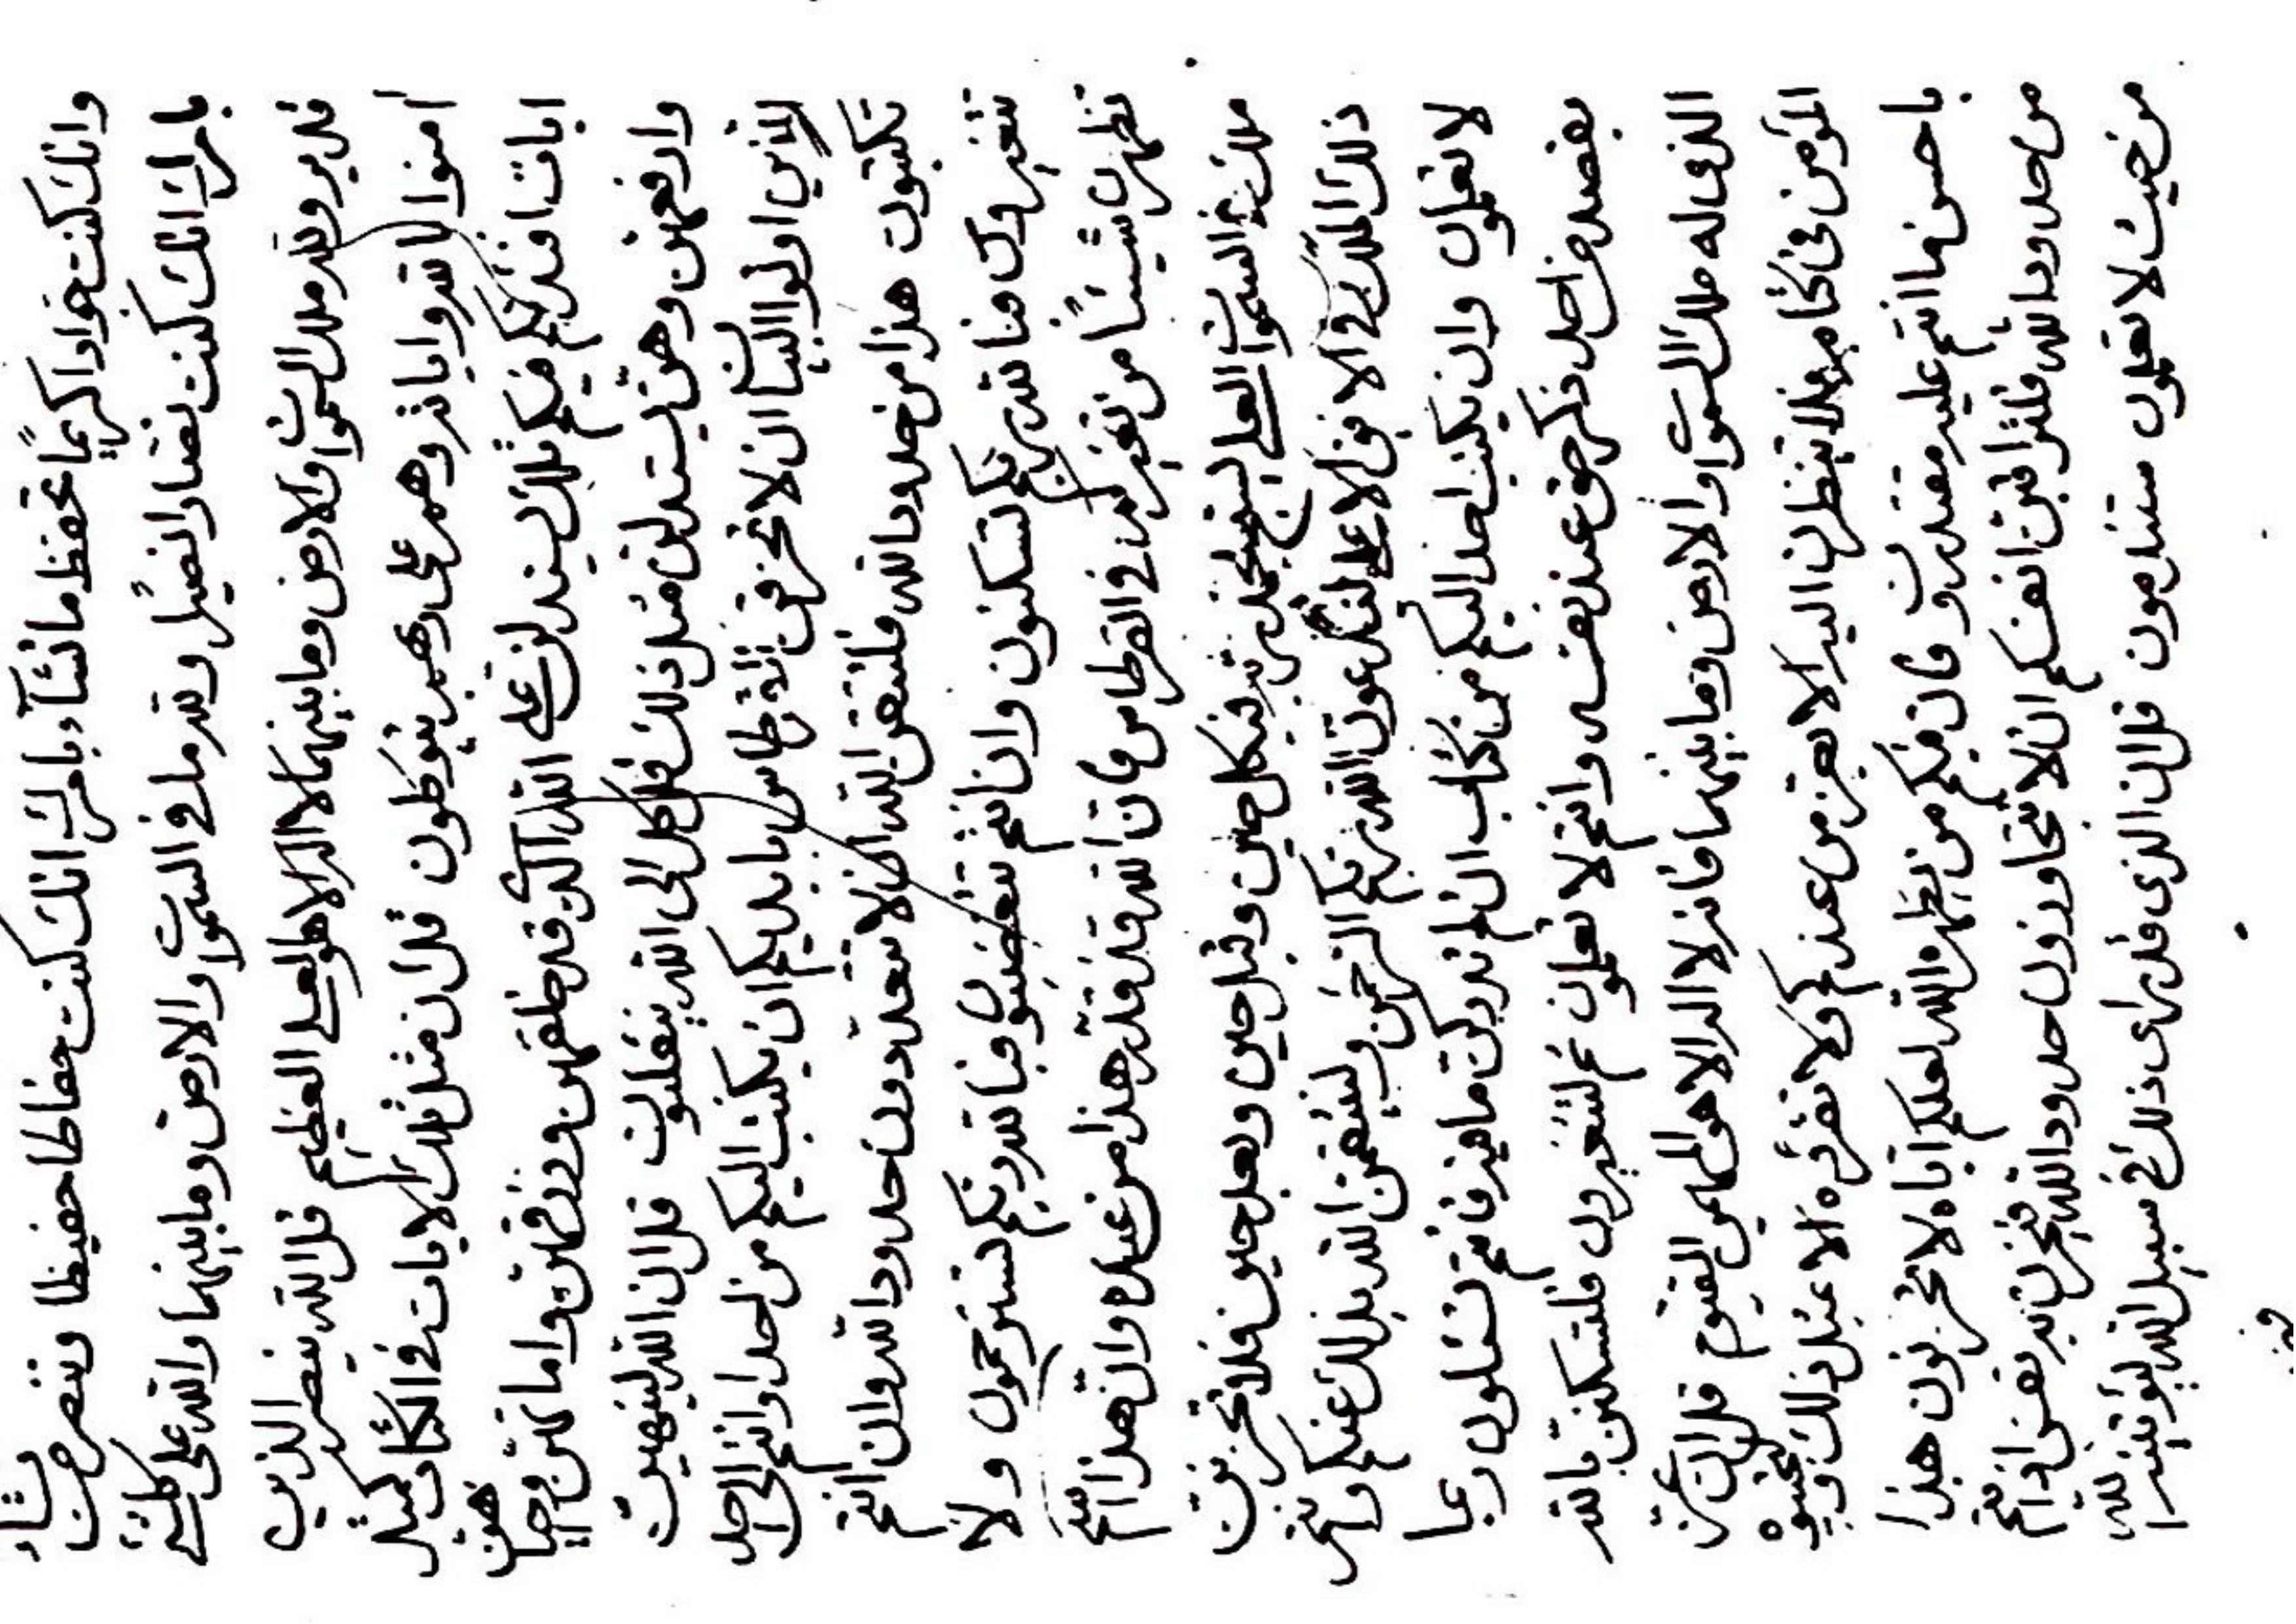 وانك كنت جوادا كريمًا تحفظ ما تشآء بامرك انك كنت حفاظا حفيظا وتنصر من تشاء
بامرك انك كنت نصارا نصيرا ولله ما في السموات والارض وما بينهما والله على كلشئ
قدير ولله ملك السموات والارض وما بينهما لا اله الا هو العلي العظيم قل الله ينصر الذين
آمنوا بالله واياته وهم على ربهم يتوكلون قل ان مثل تلك الايات في الكتاب كمثل
ايات افئدتكم فيكم تلك ليستدلن على الله الذي قد خلقهن ورزقهن واماتهن واحيا هن
وارفعهن وهن ليستدلن مثل ذلك قل كل الى الله ينقلبون قل ان الله لينهين
الذين اوتوا البيان ان لا تحرقن القرطاس بايديكم ان يكتب اليكم من احد او انتم الى احد
تكتبون هذا من حدود الله فلتتقن الله ان لا تعتدون حدود الله وان انتم
تتغيرون فبالله ربكم لتسكنون وان انتم تغضبون فبالله ربكم لتسترحمون ولا
تظهرن شيئًا من تغيركم في القرطاس فان الله قد قدر هذا من عنده وان هذا اسم
ملك في السموات العلى ليسبح بحمد ربه في كل حين وقبل حين وبعد حين فلا تحزنن
ذلك الملك في الافق الاعلى الله ربكم الرحمن الله بذلك عنكم وانتم
لا تعلمون وان يكتب احد اليكم من كتاب ان لم تدركن ما فيه فانتم تسئلون ربما
يفصل احد ذكر حق عند نفسه وانتم لا تعلمون ثم لتتغيرون فلتسكنن بالله
الذي له ملك السموات والارض وما بينهما فانه لا اله الا هو المهيمن القيوم قل ان عز
المؤمن في كتابه فلا ينظرن اليه الا بعز من عندكم ولا تقرئه الا عبد ذلك وتجيبوه
باحسن ما انتم عليه مقتدرون فان فيكم من يظهره الله لعلكم اياه لا تحزنون هذا
من حدود الله فلتراقبن انفسكم ان لا تتجاوزون حدود الله به نفس اذ انتم
من حيث لا تعلمون ستندمون قل ان الذي قد راى ذلك في سبيل الله ليؤتينه الله